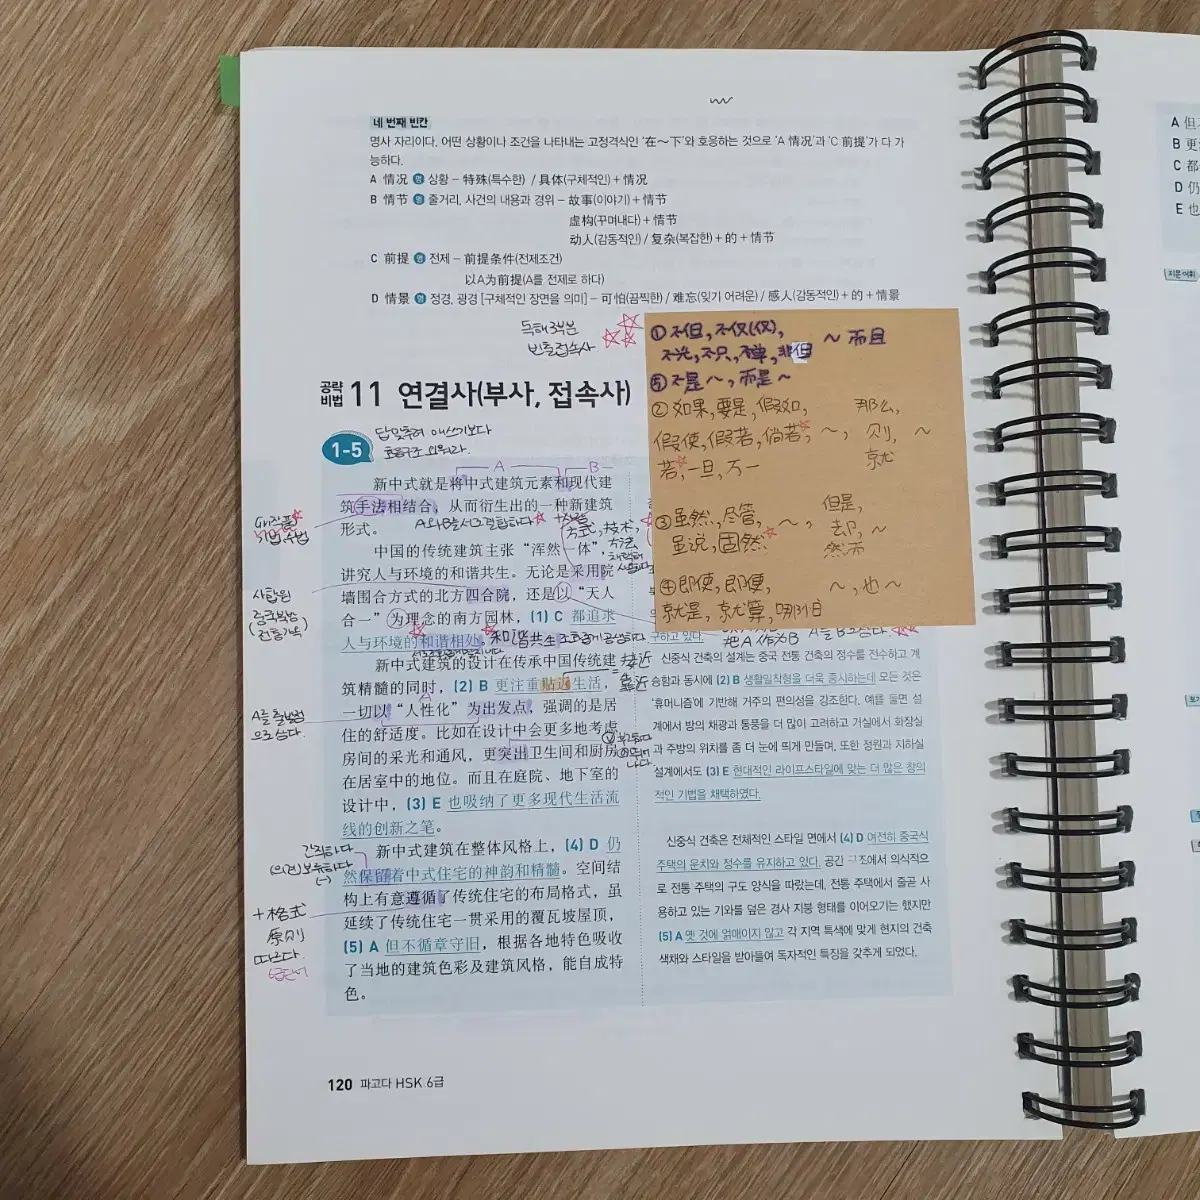 네 번째 빈칸
명사 자리이다. 어떤 상황이나 조건을 나타내는 고정격식인 '在～下'와 호응하는 것으로 'A 情况'과 'C 前提'가 다 가
능하다.
A 情况 명 상황 – 特殊(특수한) / 具体(구체적인) + 情况
B 情节 명 줄거리, 사건의 내용과 경위 – 故事(이야기) + 情节
虚构(꾸며내다) + 情节
动人(감동적인) / 复杂(복잡한) + 的 + 情节
C 前提 명 전제 – 前提条件(전제조건)
以A为前提(A를 전제로 하다)
D 情景 명 정경, 광경 [구체적인 장면을 의미] – 可怕(끔찍한) / 难忘(잊기 어려운) / 感人(감동적인) + 的 + 情景
독해 3부분
빈출접속사
① 不但, 不仅(仅),
不光, 不只, 不单, 非但 ~ 而且
⑤ 不是 ~, 而是 ~
② 如果, 要是, 假如, 那么,
假使, 假若, 倘若, ~, 则, ~
若, 一旦, 万一 就
③ 虽然, 尽管, ~, 但是,
虽说, 固然 却, ~
然而
④ 即使, 即便, ~, 也 ~
就是, 就算, 哪怕
공략비법 11 연결사(부사, 접속사)
1-5
답 맞추려 애쓰기보다
호응구조 외워라.
A B
新中式就是将中式建筑元素和现代建
筑手法相结合，从而衍生出的一种新建筑
形式。
A와 B를 서로 결합하다
方式, 技术,
方法
中国的传统建筑主张“浑然一体”，
讲究人与环境的和谐共生。无论是采用院
墙围合方式的北方四合院，还是以“天人
合一”为理念的南方园林，(1) C 都追求
人与环境的和谐相处。
사합원
和谐共生
구하고 있다.
把A作为B A를 B로 삼다
新中式建筑的设计在传承中国传统建
筑精髓的同时，(2) B 更注重贴近生活，
一切以“人性化”为出发点，强调的是居
住的舒适度。比如在设计中会更多地考虑
房间的采光和通风，更突出卫生间和厨房
在居室中的地位。而且在庭院、地下室的
设计中，(3) E 也吸纳了更多现代生活流
线的创新之笔。
接近
靠近
A를 출발점
으로 삼다.
新中式建筑在整体风格上，(4) D 仍
然保留着中式住宅的神韵和精髓。空间结
构上有意遵循了传统住宅的布局格式，虽
延续了传统住宅一贯采用的覆瓦坡屋顶，
(5) A 但不循章守旧，根据各地特色吸收
了当地的建筑色彩及建筑风格，能自成特
色。
간직하다
(의견)보류하다
(-)
+ 格式
原则
따르다.
신중식 건축의 설계는 중국 전통 건축의 정수를 전수하고 계
승함과 동시에 (2) B 생활밀착형을 더욱 중시하는데 모든 것은
'휴머니즘'에 기반해 거주의 편의성을 강조한다. 예를 들면 설
계에서 방의 채광과 통풍을 더 많이 고려하고 거실에서 화장실
과 주방의 위치를 좀 더 눈에 띄게 만들며, 또한 정원과 지하실
설계에서도 (3) E 현대적인 라이프스타일에 맞는 더 많은 창의
적인 기법을 채택하였다.
신중식 건축은 전체적인 스타일 면에서 (4) D 여전히 중국식
주택의 운치와 정수를 유지하고 있다. 공간 구조에서 의식적으
로 전통 주택의 구도 양식을 따랐는데, 전통 주택에서 줄곧 사
용하고 있는 기와를 덮은 경사 지붕 형태를 이어오기는 했지만
(5) A 옛 것에 얽매이지 않고 각 지역 특색에 맞게 현지의 건축
색채와 스타일을 받아들여 독자적인 특징을 갖추게 되었다.
120 파고다 HSK 6급
A 但
B 更
C 都
D 仍
E 也
지문 어휘